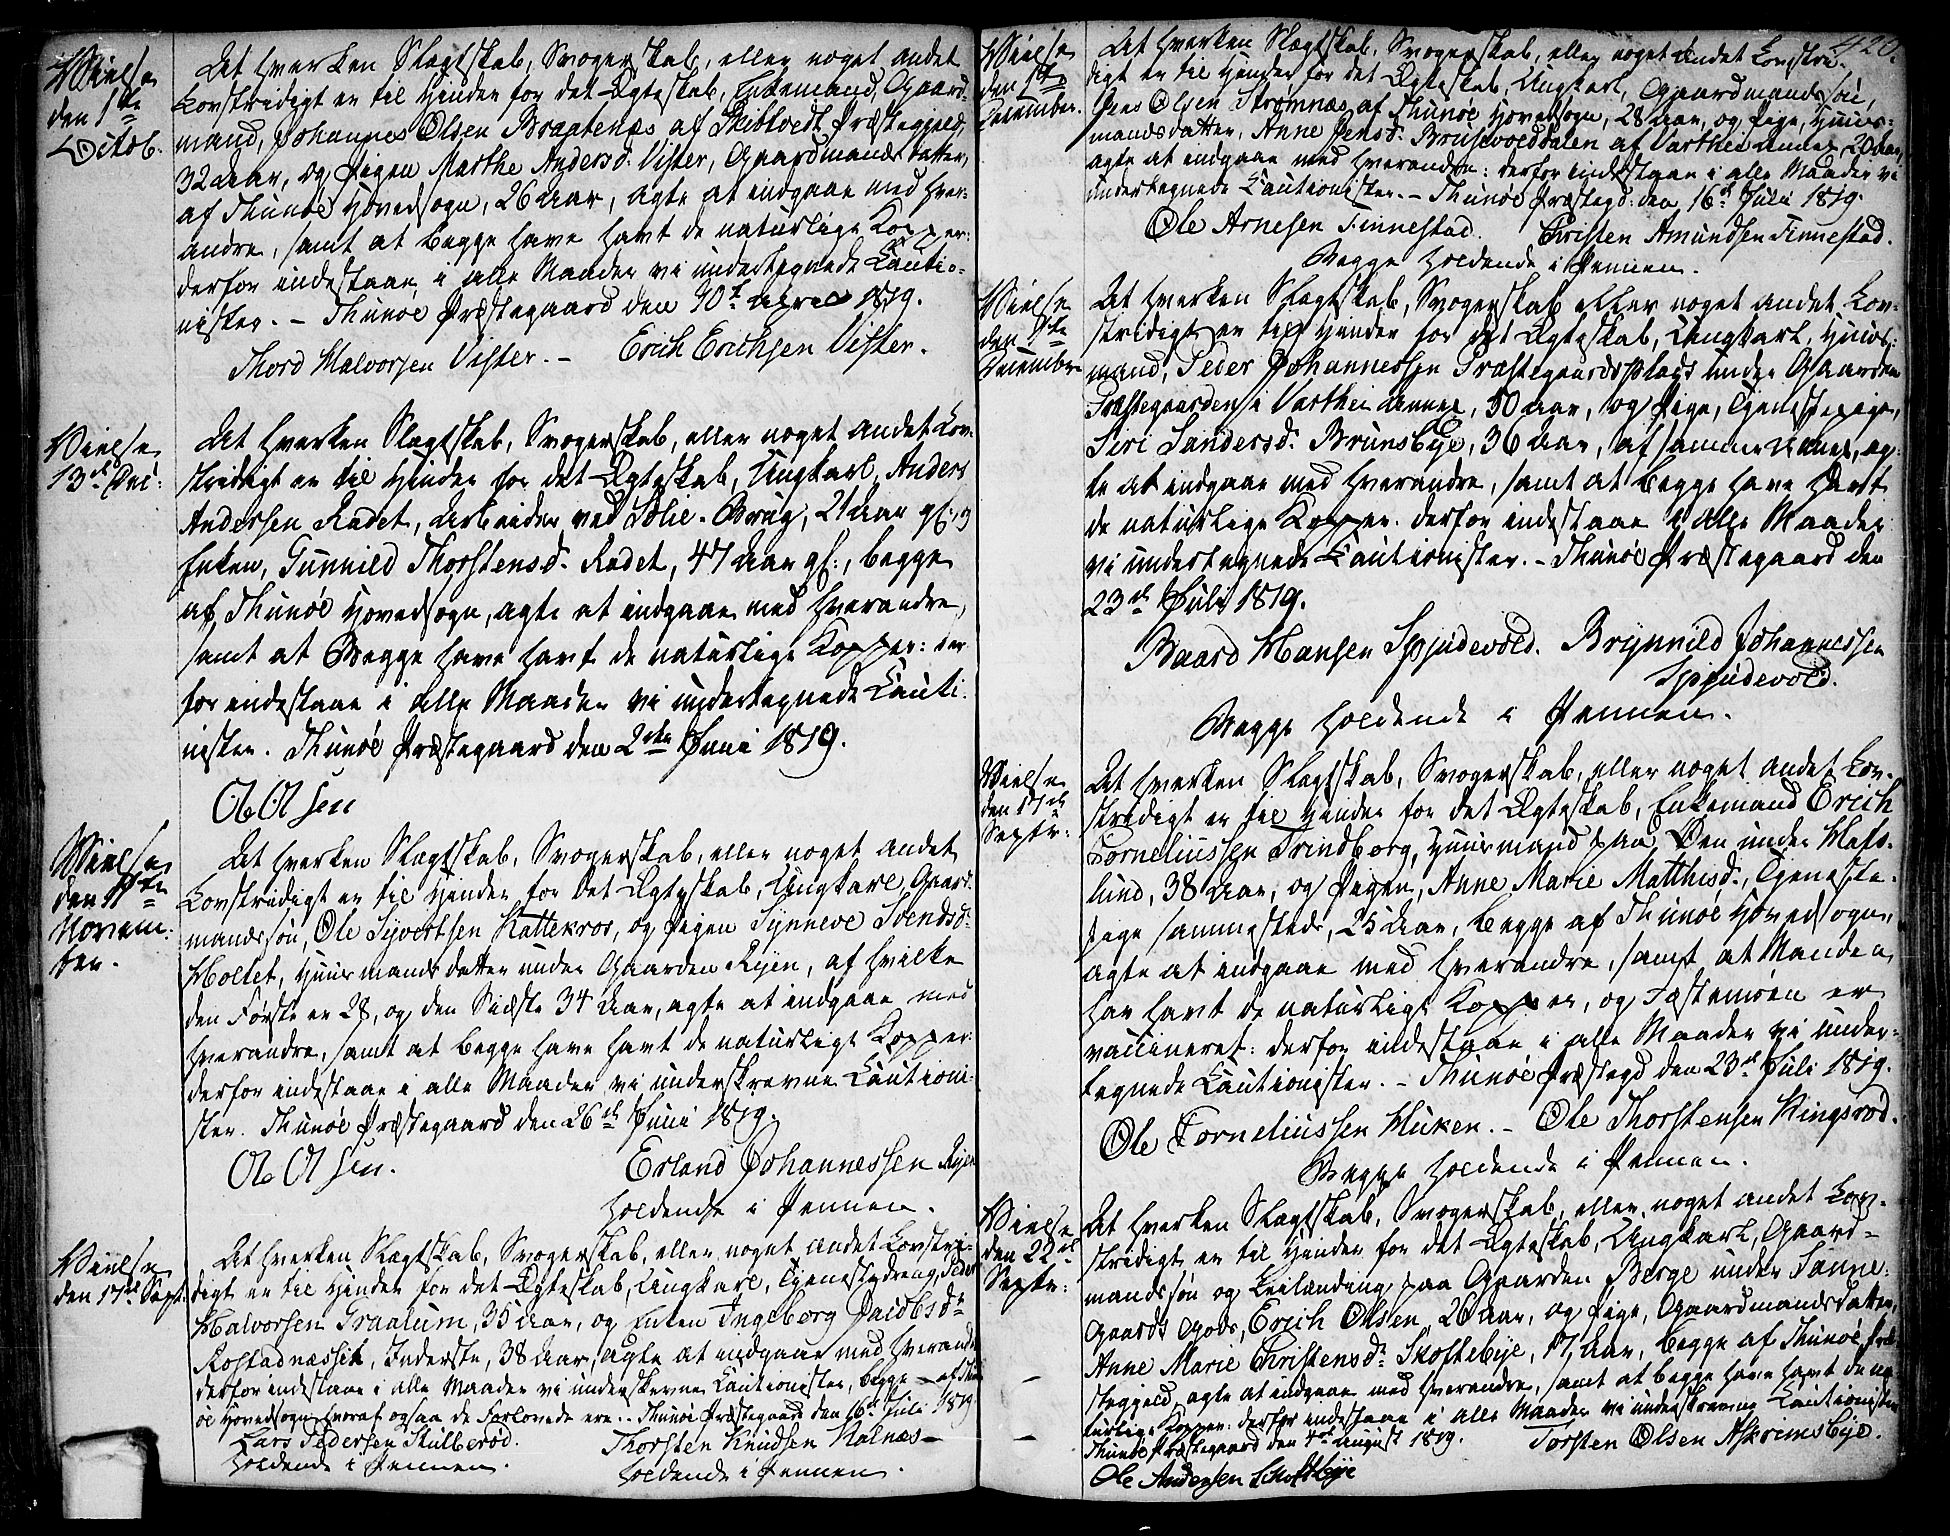 Vielse
den 1ste
Octob.
At hverken Slægtskab, Svogerskab, eller noget andet
Lovstridigt er til Hinder for det Ægteskab, Enkemand, Gaard-
mand, Johannes Olsen Braatenæs af Skibtvedt Præstegjeld,
32 Aar, og Pigen Marthe Andersd. Vister, Gaardmands datter,
af Thunøe Hovedsogn, 26 Aar, agte at indgaae med hver-
andre, samt at begge have havt de naturlige Kopper:
derfor indestaae i alle Maader vi undertegnede Cautio-
nister. - Thunøe Præstegaard den 30te April 1819.
Thord Halvorsen Vister. - Erich Erichsen Vister.
Vielse
13de Dec:
At hverken Slægtskab, Svogerskab, eller noget andet Lov-
stridigt er til Hinder for det Ægteskab, Ungkarl, Anders
Andersen Radet, Arbeider ved Solie-Brug, 21 Aar gl., og
Enken, Gunnild Thorstensd. Radet, 47 Aar gl:, begge
af Thunøe Hovedsogn, agte at indgaae med hverandre,
samt at Begge have havt de naturlige Kopper: der-
for indestaae i alle Maader vi undertegnede Cauti-
nister. Thunøe Præstegaard den 2den Juni 1819.
Ole Olsen
Vielse
den 11te
Novem-
ber.
At hverken Slægtskab, Svogerskab, eller noget andet
Lovstridigt er til Hinder for det Ægteskab, Ungkarl Gaard-
mandssøn, Ole Syvertsen Kattekros, og Pigen Synneve Svendsd:
Moltet, Huusmands datter under Gaarden Ryen, af hvilke
den Første er 28, og den Sidste 34 Aar, agte at indgaae med
hverandre, samt at begge have havt de naturlige Kopper:
derfor indestaae i alle Maader vi underskrevne Cautioni-
ster. Thunøe Præstegaard den 26de Juni 1819.
Ole Olsen. Erland Johannessen Ryen
holdende i Pennen.
Vielse
den 17de Sept:
At hverken Slægtskab, Svogerskab, eller noget andet Lovstri-
digt er til Hinder for det Ægteskab, Ungkarl, Tjenestedreng, Peder
Halvorsen Graalum, 35 Aar, og Enken Ingeborg Jacobsdr.
Rostadnæssik, Inderste, 38 Aar, agte at indgaae med hverandre
derfor indestaae i alle Maader vi underskrevne Cautionister, begge af Thun-
øe Hovedsogn hvoraf ogsaa de Forlovede ere. - Thunøe Præstegaard den 16de Juli 1819
Lars Pedersen Kulberød. Thorsten Knudsen Kalnæs -
holdende i Pennen. holdende i Pennen.
420.
Vielse
den 1ste
December.
At hverken Slægtskab, Svogerskab, eller noget andet Lovstri-
digt er til Hinder for det Ægteskab, Ungkarl, Gaardmandssøn,
Jens Olsen Strømnæs af Thunøe Hovedsogn, 28 Aar, og Pige, Huus-
mandsdatter, Anne Jensd. Brusevoldbalen af Varthei Annex, 20 Aar,
agte at indgaae med hverandre: derfor indestaae i alle Maader vi
undertegnede Cautionister. - Thunøe Præstegd: den 16de Juli 1819.
Ole Arnesen Finnestad. Christen Amundsen Finnestad.
Begge holdende i Pennen.
Vielse
den 1ste
December
At hverken Slægtskab, Svogerskab eller noget andet Lov-
stridigt er til Hinder for det Ægteskab, Ungkarl, Huus-
mand, Peder Johannessen Præstegaardsplads under Gaarden
Præstegaarden i Varthei Annex, 50 Aar, og Pige, Tjenestepige,
Siri Sandersd. Brunsbye, 36 Aar, af samme Annex, ag-
te at indgaae med hverandre, samt at begge have havt
de naturlige Kopper. derfor indestaae i alle Maader
vi undertegnede Cautionister. - Thunøe Præstegaard den
23de Juli 1819.
Baard Hansen Spydevold. Brynnild Johannessen
Spydevold.
Begge holdende i Pennen.
Vielse
den 17de
Septr:
At hverken Slægtskab, Svogerskab, eller noget andet Lov-
stridigt er til Hinder for det Ægteskab, Enkemand Erich
Corneliussen Trindborg, Huusmand paa Øen under Hafs-
lund, 38 Aar, og Pigen, Anne Marie Matthisd., Tjeneste-
pige sammesteds, 25 Aar, begge af Thunøe Hovedsogn,
agte at indgaae med hverandre, samt at Manden
har havt de naturlige Kopper, og Fæstemøen er
vaccineret: derfor indestaae i alle Maader vi under-
tegnede Cautionister. - Thunøe Præstegd den 23de Juli 1819.
Ole Corneliussen Kuken. - Ole Thorstensen Kingsrød.
Begge holdende i Pennen.
Vielse
den 22de
Septr:
At hverken Slægtskab, Svogerskab, eller noget andet Lov-
stridigt er til Hinder for det Ægteskab, Ungkarl, Gaard-
mandssøn og Leilænding paa Gaarden Berge under Sanne-
gaards Gods, Erich Olsen, 26 Aar, og Pige, Gaardmandsdatter,
Anne Marie Christensdr Skoftebye, 17 Aar, begge af Thunøe Præ-
stegjeld, agte at indgaae med hverandre, samt at begge have havt de na-
turlige Kopper: derfor indestaae i alle Maader vi underskrevne Cautionister
Thunøe Præstegaard den 4de August 1819. Torsten Olsen Askrimsbye.
Ole Andersen Skoftbye